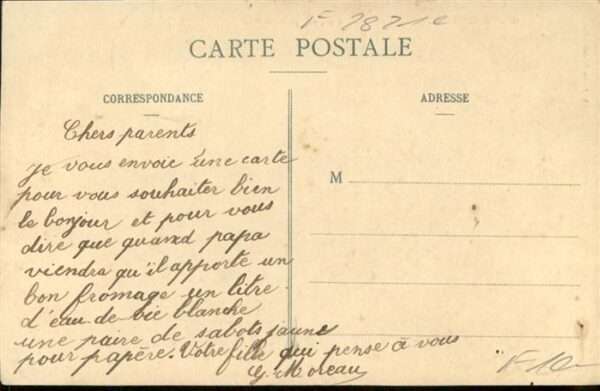 F 78214
CARTE POSTALE
CORRESPONDANCE
ADRESSE
Chers parents
Je vous envoie une carte
pour vous souhaiter bien
le bonjour et pour vous
dire que quand papa
viendra qu'il apporte un
bon fromage un litre
d'eau de vie blanche
une paire de sabots jaune
pour papère. Votre fille qui pense à vous
G. Moreau
M
F 10-